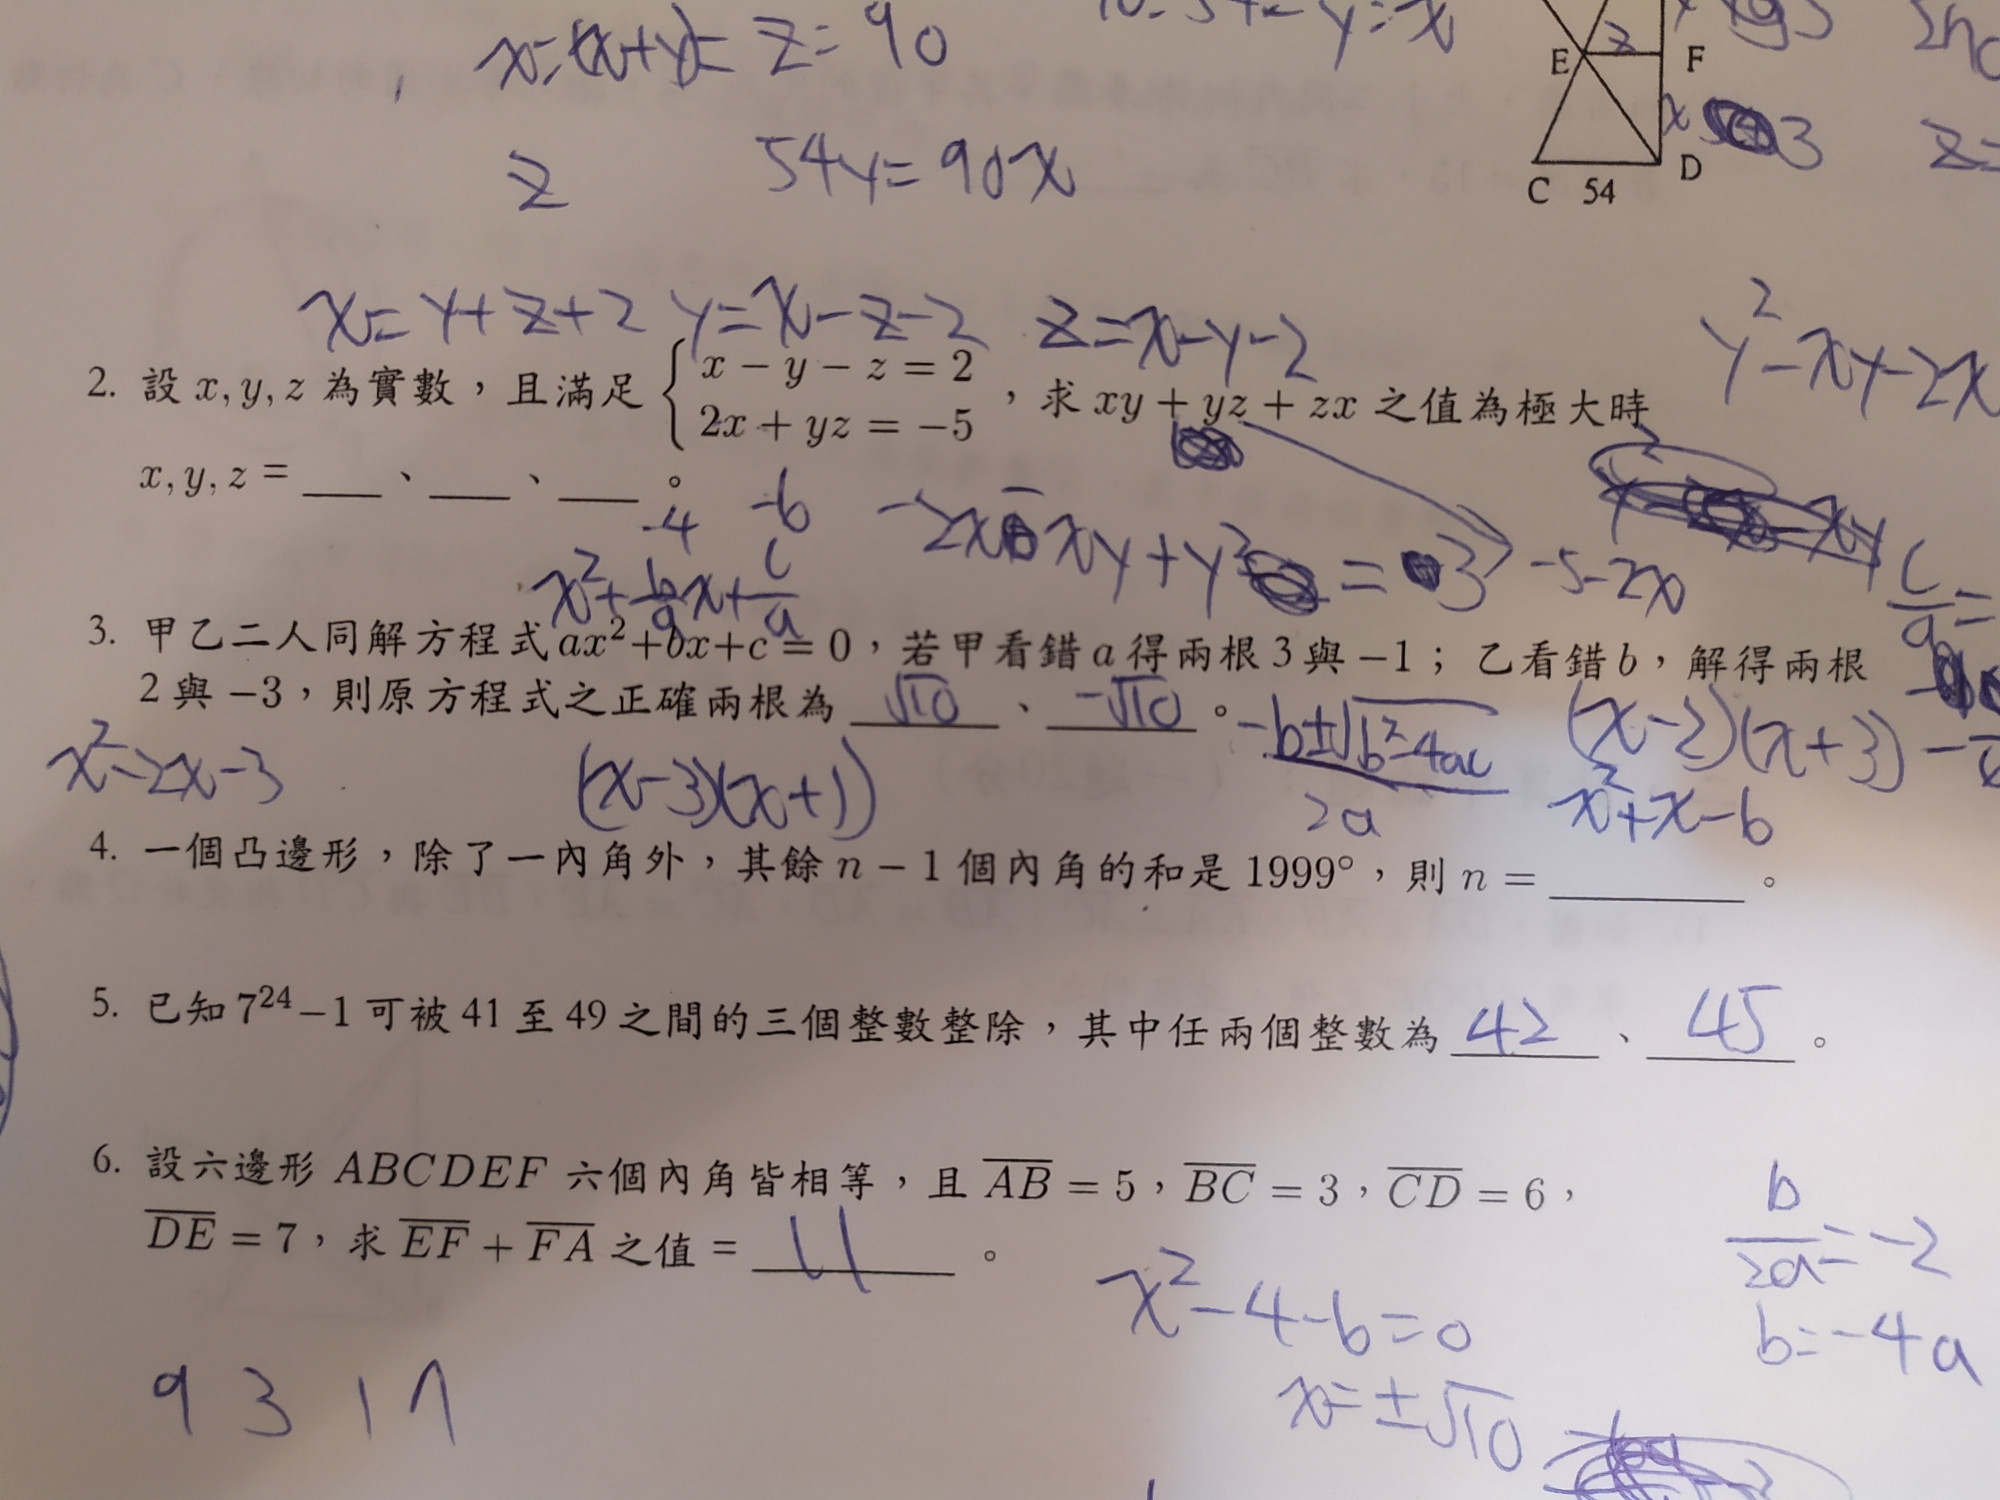 x=(x+y)= z=90
y=x
E z F
x 3
z 54y=90x
D
C 54
z=
x=y+z+2 y=x-z-2 z=x-y-2
y²-xy-2x
2. 設 x, y, z 為實數，且滿足 { x − y − z = 2
2x + yz = −5 ，求 xy + yz + zx 之值為極大時
x, y, z = ___ 、 ___ 、 ___ 。
-4 -6
-2x-xy+y² = 3 -5-2x
x²+b/a x+c/a
c/a=
3. 甲乙二人同解方程式 ax²+bx+c = 0，若甲看錯 a 得兩根 3 與 −1；乙看錯 b，解得兩根
2 與 −3，則原方程式之正確兩根為 √10 、 -√10 。
-b±√b²-4ac / 2a
(x-2)(x+3)
x²-2x-3 (x-3)(x+1)
x²+x-6
4. 一個凸邊形，除了一內角外，其餘 n − 1 個內角的和是 1999°，則 n = ______ 。
5. 已知 7²⁴−1 可被 41 至 49 之間的三個整數整除，其中任兩個整數為 42 、 45 。
6. 設六邊形 ABCDEF 六個內角皆相等，且 A̅B̅ = 5，B̅C̅ = 3，C̅D̅ = 6，
D̅E̅ = 7，求 E̅F̅ + F̅A̅ 之值 = 11 。
b/2a=-2
x²-4-6=0
b=-4a
x=±√10
9 3 1 7